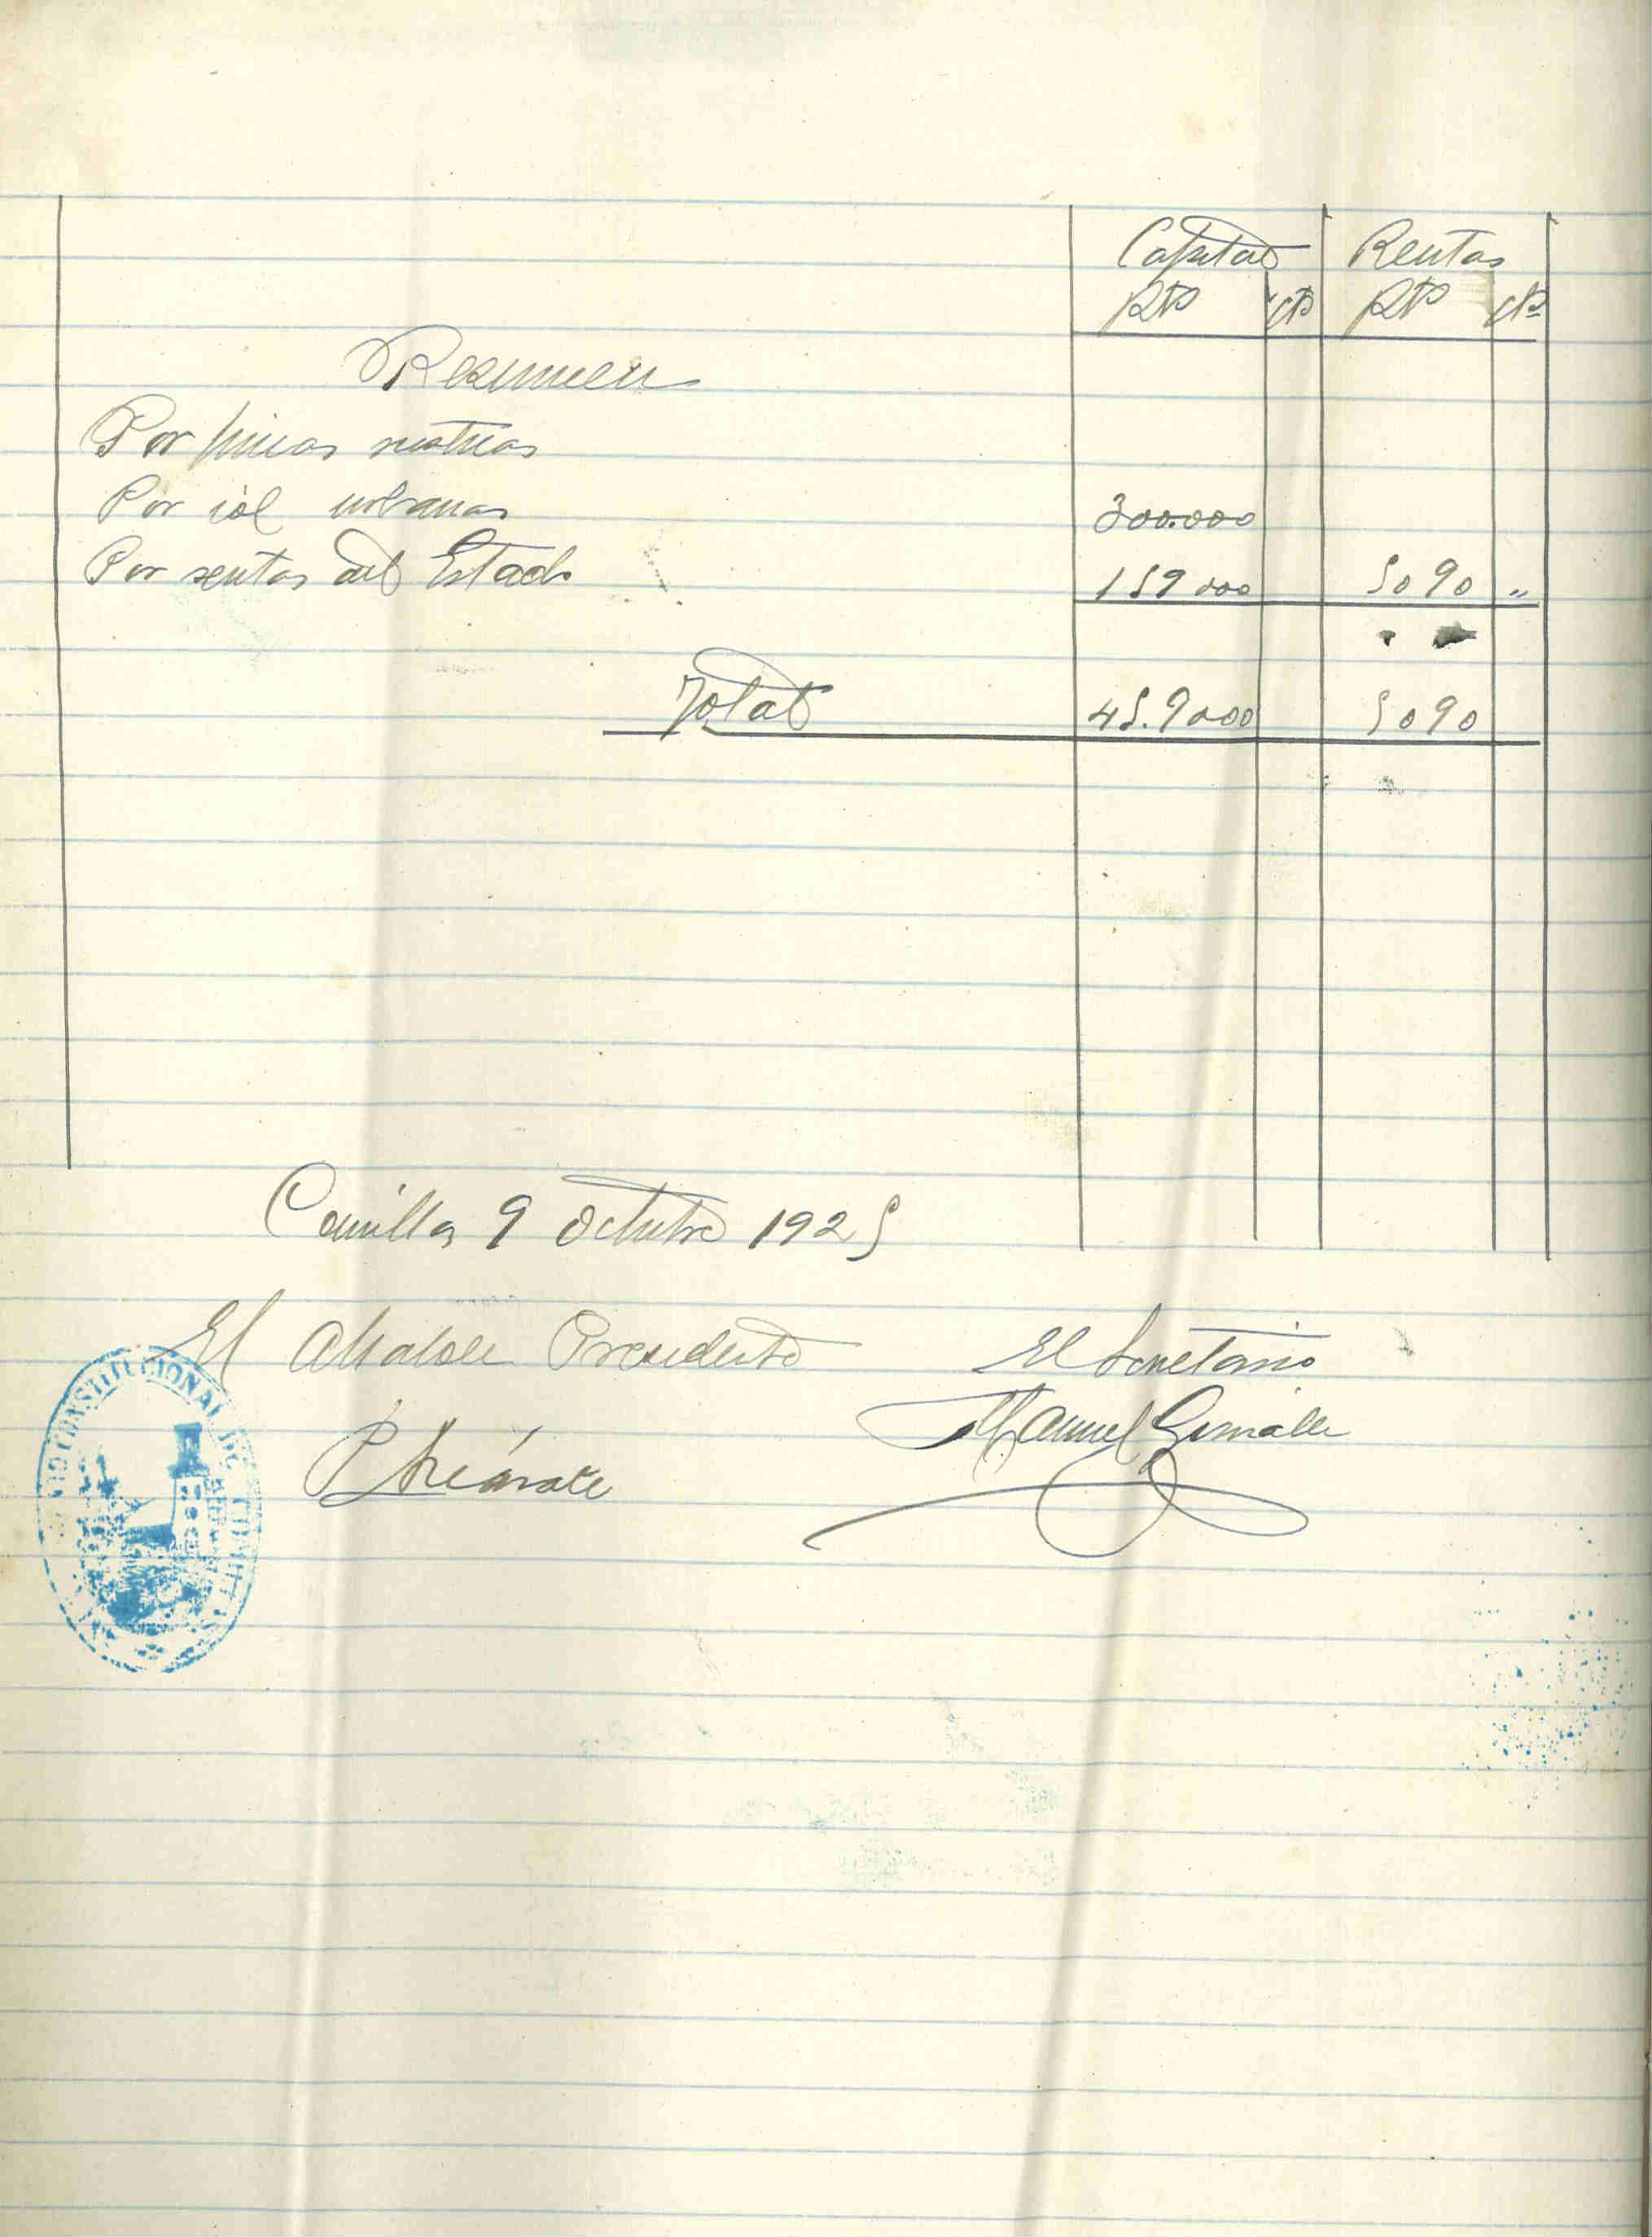 Capital Rentas
Pts cts Pts cts
Resumen
Por fincas rusticas
Por id urbanas 300.000
Por rentas del Estado 159000 5090 "
Total 45.9000 5090
Comillas 9 Octubre 1925
El Alcalde Presidente El Secretario
P Manuel González
CONSTITUCIONAL DE